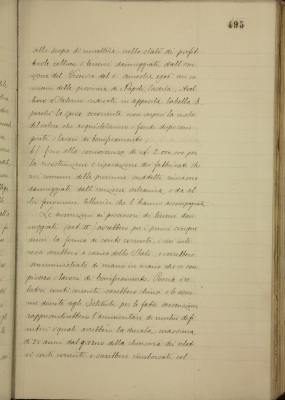 495
allo scopo di rimettere, nello stato di
colture i terreni danneggiati dall'eru-
zione del Vesuvio del 4 aprile 1906 in co-
muni delle provincie di Napoli, Caserta, Avel-
lino e Salerno indicati in apposita tabella
perchè la spesa occorrente non superi la metà
del valore che acquisteranno i fondi dopo com-
piuti i lavori di bonificamento;
b) fino alla concorrenza di L. 2 per
la ricostruzione e riparazione dei fabbricati che
nei comuni delle provincie suddette rimasero
danneggiati dall'eruzione vulcanica, e da al-
tri fenomeni tellurici che l'hanno accompagnata.
Le sovvenzioni ai possessori di terreni dan-
neggiati (art. ) sarebbero per i primi cinque
anni in forma di conto corrente, i cui inte-
ressi sarebbero a carico dello Stato, e sarebbero
somministrate di mano in mano che si com-
piessero i lavori di bonificamento. Poscia i re-
lativi conti correnti sarebbero chiusi e le som-
me dovute agli Istituti per le fatte sovvenzioni
rappresenterebbero l'ammontare di mutui defi-
nitivi i quali avrebbero la durata massima
di 25 anni dal giorno della chiusura dei relati-
vi conti correnti e sarebbero rimborsati col